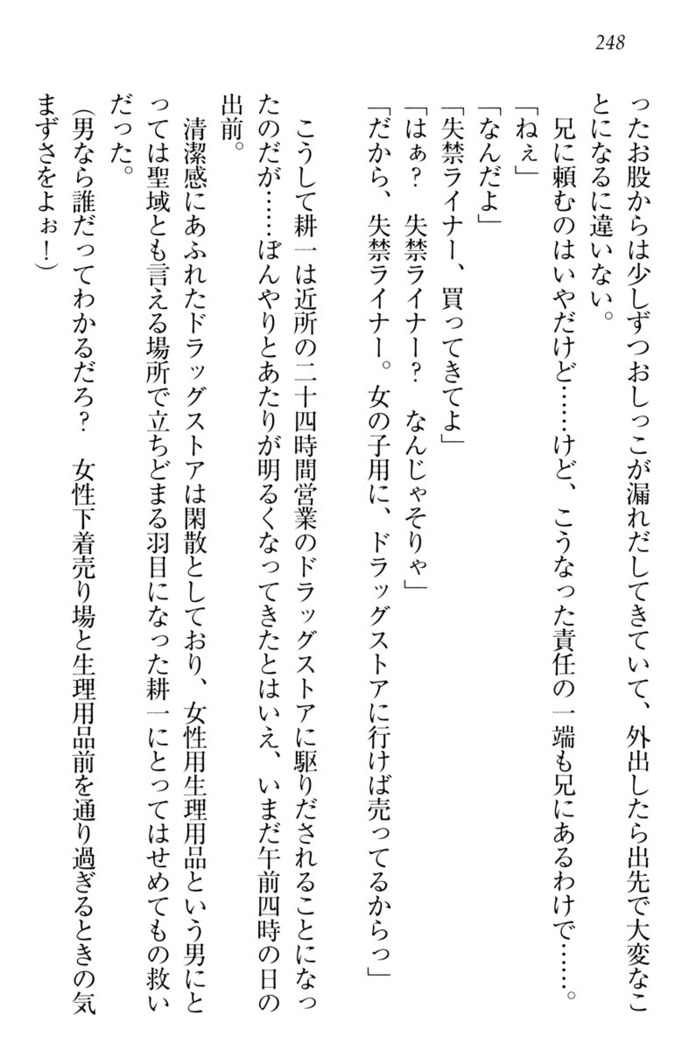 248
ったお股からは少しずつおしっこが漏れだしてきていて、外出したら出先で大変なこ
とになるに違いない。
兄に頼むのはいやだけど……けど、こうなった責任の一端も兄にあるわけで……。
「ねぇ」
「なんだよ」
「失禁ライナー、買ってきてよ」
「はぁ？　失禁ライナー？　なんじゃそりゃ」
「だから、失禁ライナー。女の子用に、ドラッグストアに行けば売ってるからっ」
こうして耕一は近所の二十四時間営業のドラッグストアに駆りだされることになっ
たのだが……ぼんやりとあたりが明るくなってきたとはいえ、いまだ午前四時の日の
出前。
清潔感にあふれたドラッグストアは閑散としており、女性用生理用品という男にと
っては聖域とも言える場所で立ちどまる羽目になった耕一にとってはせめてもの救い
だった。
（男なら誰だってわかるだろ？　女性下着売り場と生理用品前を通り過ぎるときの気
まずさをよぉ！）